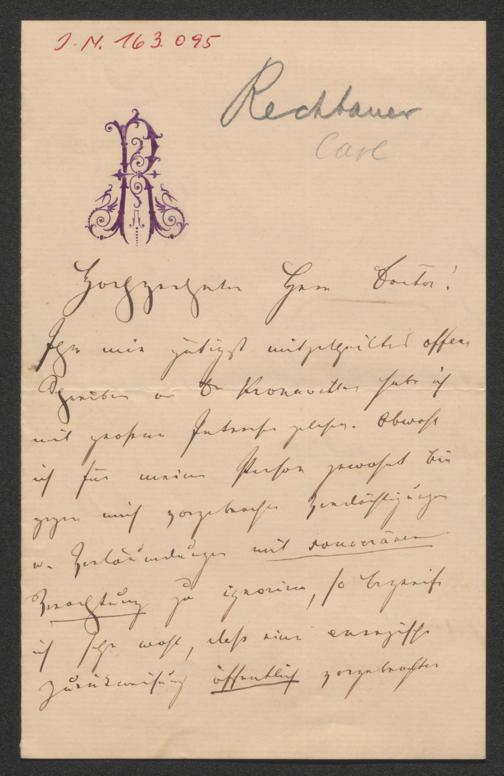 J. N. 163.095
Rechbauer
Carl
R
Hochgeehrter Herr Doctor!
Ihr mir gütigst mitgetheiltes offenes
Schreiben an Dr Kronawetter habe ich
mit großem Interesse gelesen. Obwohl
ich für meine Person gewohnt bin
gegen mich vorgebrachte Verdächtigungen
u. Verläumdungen mit souveräner
Verachtung zu ignoriren, so begreife
ich sehr wohl, daß eine energische
Zurückweisung öffentlich vorgebrachter